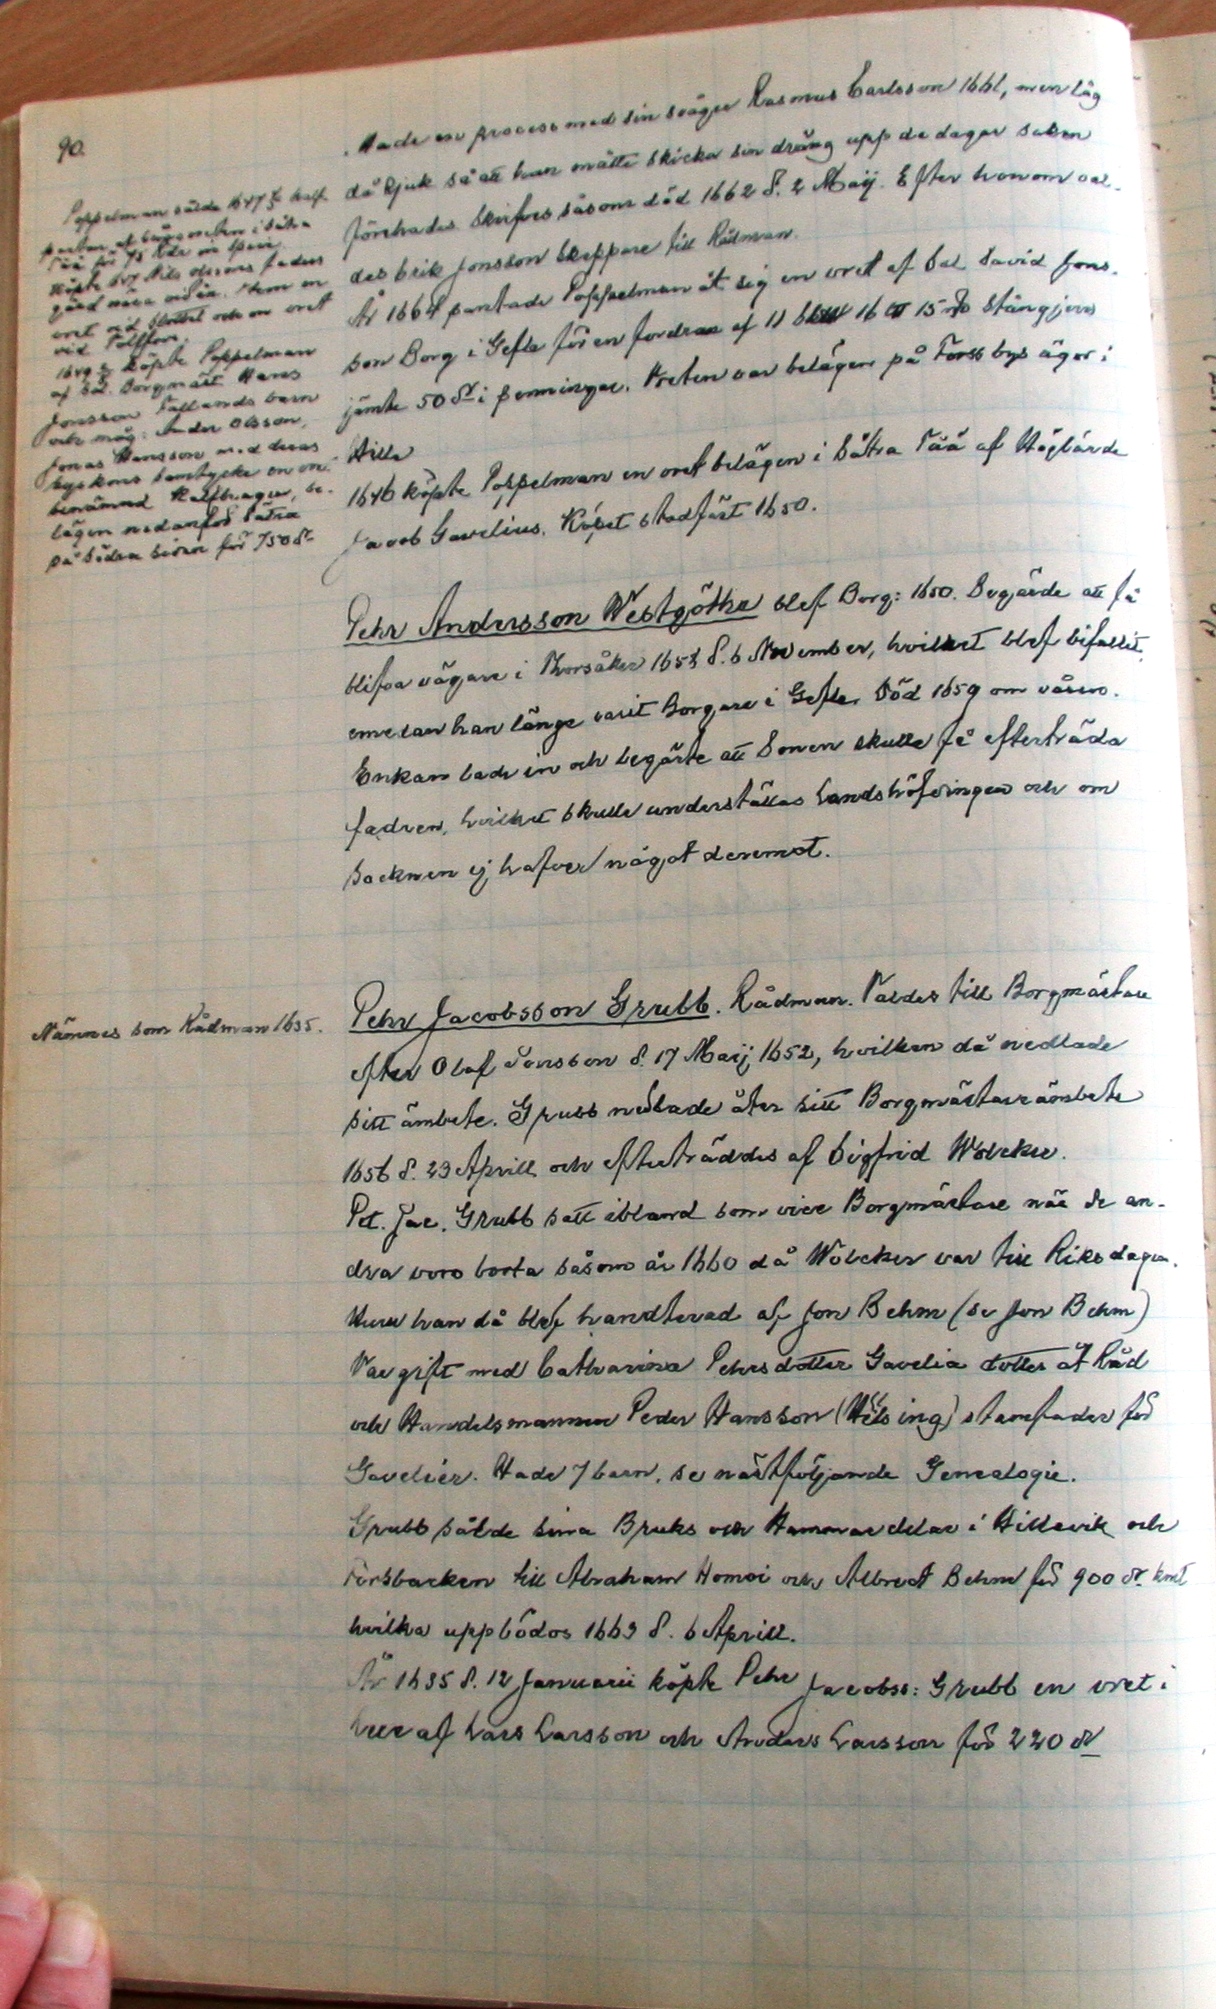 90.
Poppelman sålde 1647 half
parten af
köpte
vret vid Slottet och en vret
vid Tolffors.
1649 köpte Poppelman
af Sal. Borgmäst Hans
Jonsson Vallands barn
och måg: Ander Olsson,
Jonas Hansson med deras
syskons samtycke en vret
benämnd Kalfhagen, be-
lägen nedanför Sätra
på Södra sidan för 750 dr
Hade en process med sin svåger Rasmus Carlsson 1661, men låg
då sjuk så att han måtte skicka sin dräng upp de dagar saken
förehades. Skrifves såsom död 1662 d. 2 Maij. Efter honom val-
des Erik Jonsson Skeppare till Rådman.
År 1664 pantade Poppelman åt sig en vret af Sal David Jons-
son Borg i Gefle för en fordran af 11 16 15 Stångjern
jämte 50 dr i penningar. Vreten var belägen på Forssbys ägor i
Hille
1646 köpte Poppelman en vret belägen i Sätra Tää af Höglärde
Jacob Gavelius. Köpet stadfäst 1650.
Pehr Andersson Westgöthe blef Borg: 1650. Begärde att få
blifva vägare i Thorsåker 1654 d. 6 November, hvilket blef bifallit,
emedan han länge varit Borgare i Gefle. Död 1659 om våren.
Enkan lade in och begärte att Sonen skulle få efterträda
fadren, hvilket skulle underställas Landshöfdingen och om
Socknen ej hafver något deremot.
Nämnes som Rådman 1635.
Pehr Jacobsson Grubb. Rådman. Valdes till Borgmästare
efter Olof Jonsson d. 17 Maij 1652, hvilken då nedlade
sitt ämbete. Grubb nedlade åter sitt Borgmästareämbete
1656 d. 23 Aprill och efterträddes af Sigfrid Wölcker.
Pet. Jac. Grubb satt ibland som vice Borgmästare när de an-
dra voro borta såsom år 1660 då Wölcker var till Riksdagen.
Huru han då blef handterad af Jon Behm (se Jon Behm)
Var gift med Catharina Pehrsdotter Gavelia dotter åt Råd
och Handelsmannen Peder Hansson (Helsing) stamfader för
Gavelier. Hade 7 barn, se nästföljande Genealogie.
Grubb sålde sina Bruks och Hammardelar i Hillevik och
Forsbacken till Abraham Momoi och Albrect Behm för 900 dr kmt
hvilka uppbödos 1663 d. 6 Aprill.
År 1635 d. 12 Januarii köpte Pehr Jacobss: Grubb en vret i
af Lars Larsson och Anders Larsson för 220 dr